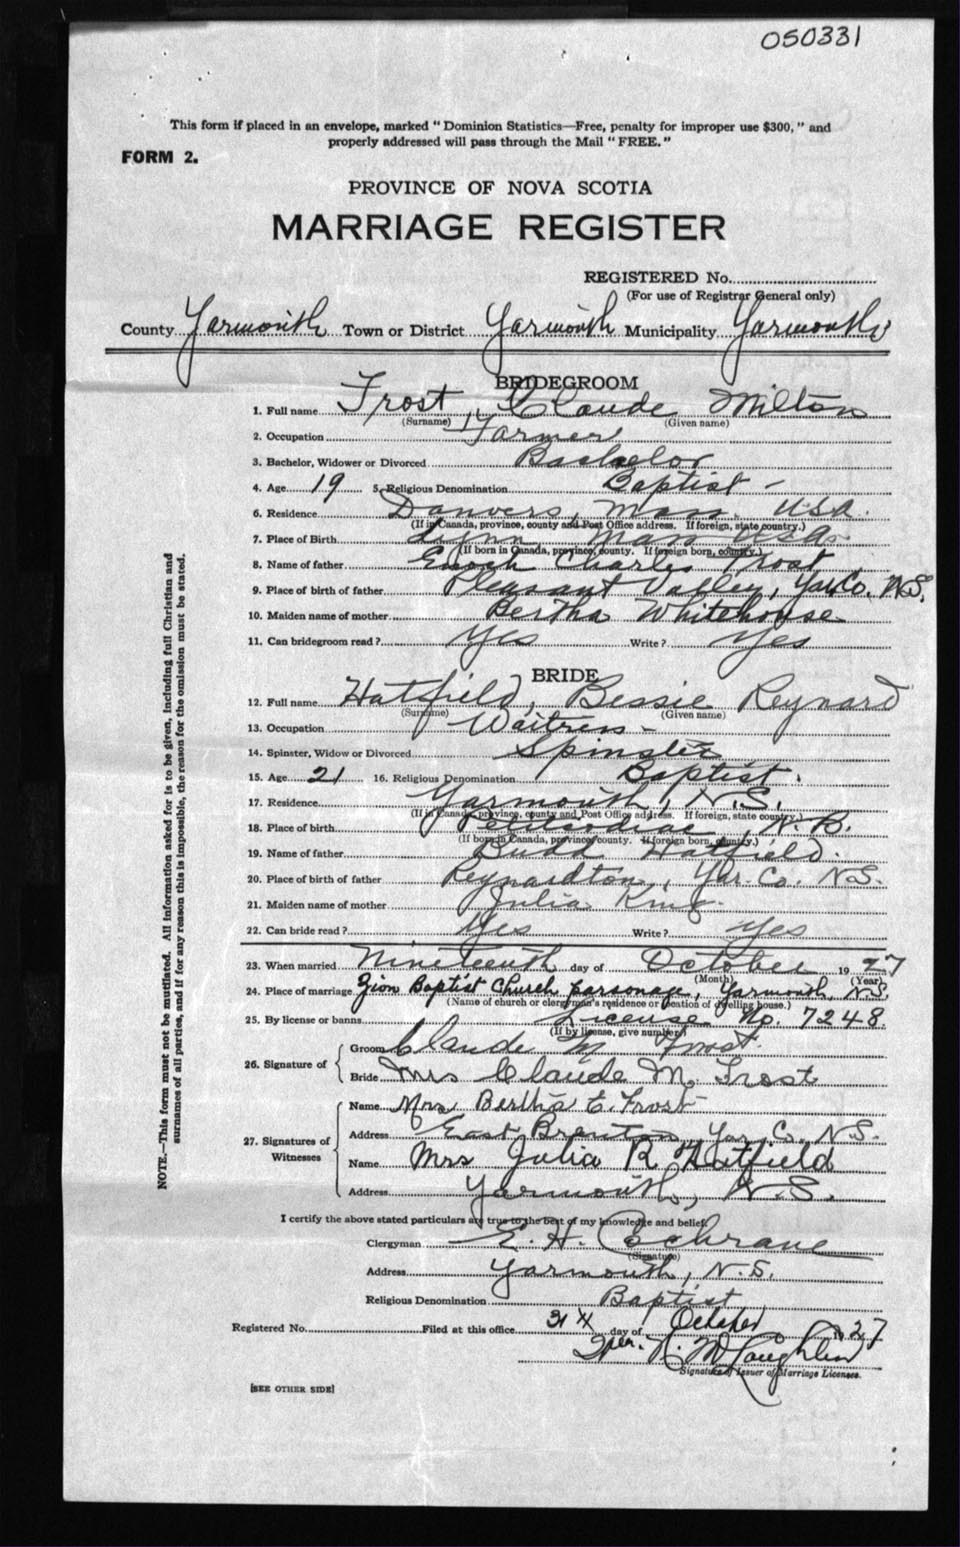 050331
This form if placed in an envelope, marked " Dominion Statistics—Free, penalty for improper use $300, " and
properly addressed will pass through the Mail " FREE. "
FORM 2.
PROVINCE OF NOVA SCOTIA
MARRIAGE REGISTER
REGISTERED No.
(For use of Registrar General only)
County Yarmouth Town or District Yarmouth Municipality Yarmouth
BRIDEGROOM
1. Full name Frost, Claude Milton
(Surname) (Given name)
2. Occupation Farmer
3. Bachelor, Widower or Divorced Bachelor
4. Age 19 5. Religious Denomination Baptist -
6. Residence Danvers, Mass. USA.
(If in Canada, province, county and Post Office address. If foreign, state country.)
7. Place of Birth Lynn Mass USA
(If born in Canada, province, county. If foreign born, country.)
8. Name of father Enoch Charles Frost
9. Place of birth of father Pleasant Valley, Yar. Co. N.S.
10. Maiden name of mother Bertha Whitehouse
11. Can bridegroom read ? Yes Write ? Yes
BRIDE
12. Full name Hatfield, Bessie Reynard
(Surname) (Given name)
13. Occupation Waitress -
14. Spinster, Widow or Divorced Spinster
15. Age 21 16. Religious Denomination Baptist.
17. Residence Yarmouth, N.S.
(If in Canada, province, county and Post Office address. If foreign, state country.)
18. Place of birth Petitcodiac, N.B.
(If born in Canada, province, county. If foreign born, country.)
19. Name of father Budd Hatfield.
20. Place of birth of father Reynardton, Yar. Co. N.S.
21. Maiden name of mother Julia King.
22. Can bride read ? Yes Write ? Yes
23. When married Nineteenth day of October 1927
(Month) (Year)
24. Place of marriage Zion Baptist Church parsonage, Yarmouth, N.S.
(Name of church or clergyman's residence or location of dwelling house.)
25. By license or banns License No. 7248
(If by license, give number)
26. Signature of
Groom Claude M Frost.
Bride Mrs Claude M. Frost
27. Signatures of Witnesses
Name Mrs Bertha E. Frost
Address East Brenton, Yar. Co. N.S.
Name Mrs Julia R Hatfield
Address Yarmouth, N.S.
I certify the above stated particulars are true to the best of my knowledge and belief.
Clergyman E. H. Cochrane
(Signature)
Address Yarmouth, N.S.
Religious Denomination Baptist
Registered No. Filed at this office 31 day of October 1927
Per. N. McLaughlin
Signature of Issuer of Marriage Licenses.
[SEE OTHER SIDE]
NOTE.—This form must not be mutilated. All information asked for is to be given, including full Christian and
surnames of all parties, and if for any reason this is impossible, the reason for the omission must be stated.